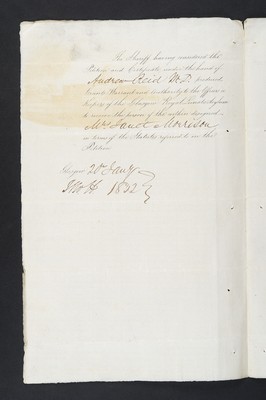 The Sheriff having considered the
Petition and Certificate under the hand of
Andrew Reid M.D. produced
Grants Warrant and Authority to the Officers &
Keepers of the Glasgow Royal Lunatic Asylum
to receive the person of the within designed
Mrs Janet Morrison
in terms of the Statutes referred to in the
Petition
Glasgow 20 Jany
1832